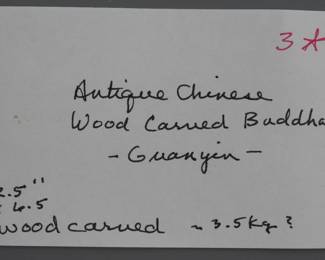 3 *
Antique Chinese
Wood Carved Buddha
- Guanyin -
2.5"
6.5
wood carved ~ 3.5kg ?